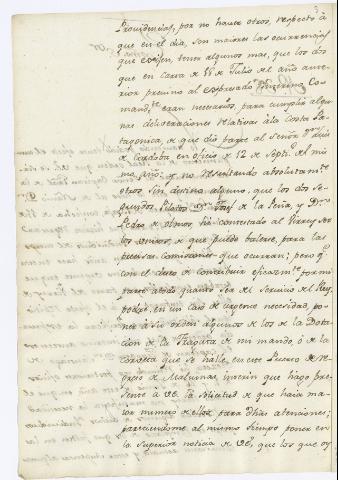 Providencias, por no haver otros, respecto á
que en el dia, son maiores las ocurrencias
que exijen, tener algunos mas, que los dos
que en carta de de Julio del año ante-
rior previno al expresado Interino Co-
mand.te eran necesarios, para cumplir algu-
nas deliveraciones relativas á la Costa Pa-
tagonica, de que dio parte al Señor D.n Luis
de Cordova en oficio de 12 de Sept.re del mi
mo año: y no resultando absolutam.te
otros sin destino alguno, que los dos Se-
gundos Pilotos D.n Josef de la Peña, y D.n
Pedro de olmos, he contestado al Virrey ser
los unicos, de que puede valerse, para las
precisas comisiones que ocurran; pero q.e
con el deseo de contribuir eficazm.te por mi
parte á todo quanto sea del servicio del Rey,
podré, en un caso de urgente necesidad, po-
ner á su orden algunos de los de la Dota-
cion de la Fragata de mi mando, ó de la
corveta que se halle en este Puerto de re-
greso de Maluinas, interin que hago pre-
sente á VE. la solicitud de que haia ma-
ior numero de ellos para dhas atenciones;
pareciendome al mismo tiempo poner en
la superior noticia de VE, que los que oy